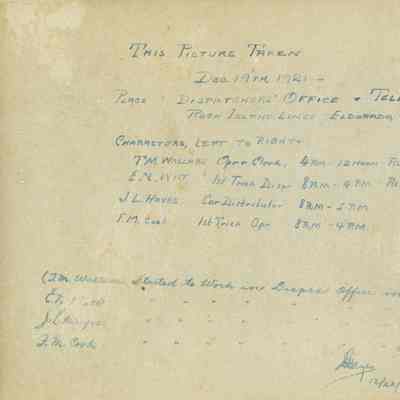 THIS PICTURE TAKEN
DEC 19TH 1921 -
PLACE: DISPATCHERS' OFFICE & TEL
ROCK ISLAND LINES ELDORADO
CHARACTORS, LEFT TO RIGHT:
T.M. WALLACE Opr + Clerk, 4AM - 12 NOON
E.N. WITT 1st Trick Dispr 8AM - 4PM
J.L. HAYES Car Distributor 8AM - 5PM
F.M. Cook 1st Trick Opr 8AM - 4PM
(T.M. Wallace Started to Work in Dispr Office
" " " " "
J.L. Hayes " " " " "
F.M. Cook " " " " "
Hayes
12/22/